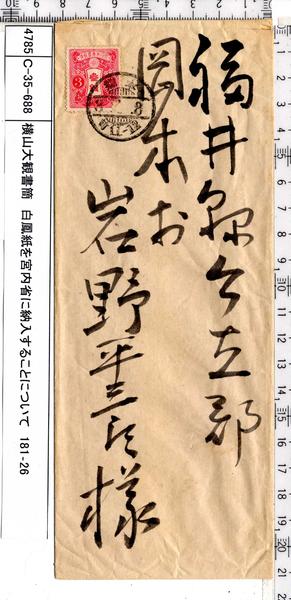 4785 C-35-688 横山大観書簡 白鳳紙を宮内省に納入することについて 181-26
福井縣今立郡
岡本村
岩野平三郎様
3